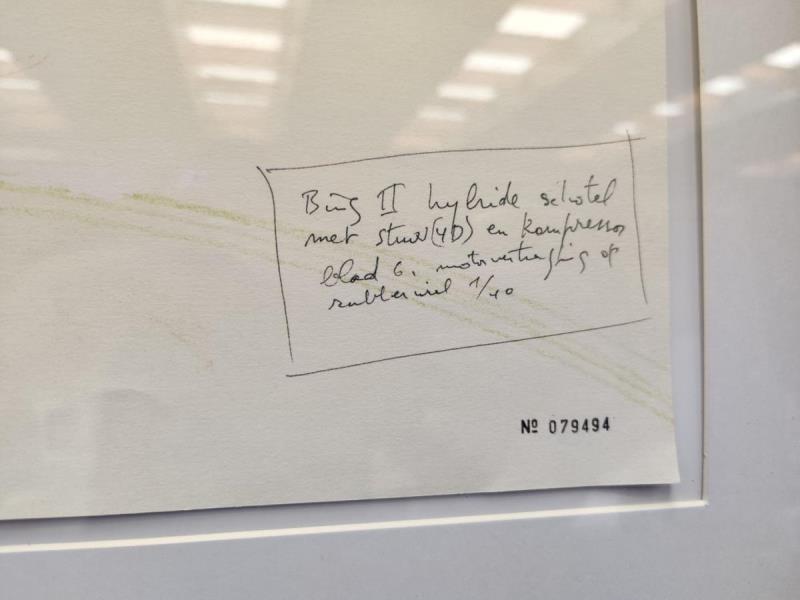 Bing II hybride schotel
met stuur(4D) en kompressor
blad 6. motorvertraging op
rubberwiel 1/40
Nº 079494